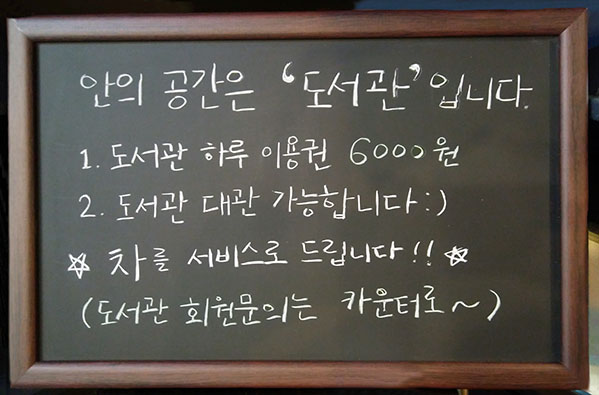 안의 공간은 '도서관'입니다.
1. 도서관 하루 이용권 6000원
2. 도서관 대관 가능합니다:)
☆ 차를 서비스로 드립니다!! ☆
(도서관 회원문의는 카운터로~)